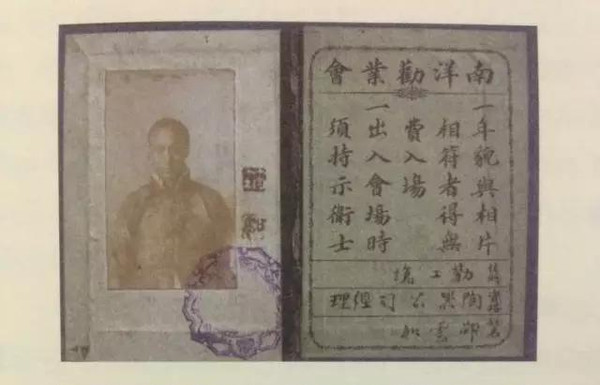 南洋勸業會
一年貌與相片
相符者得無
費入場
一出入會場時
須持示衛士
公司經理
邵雲如